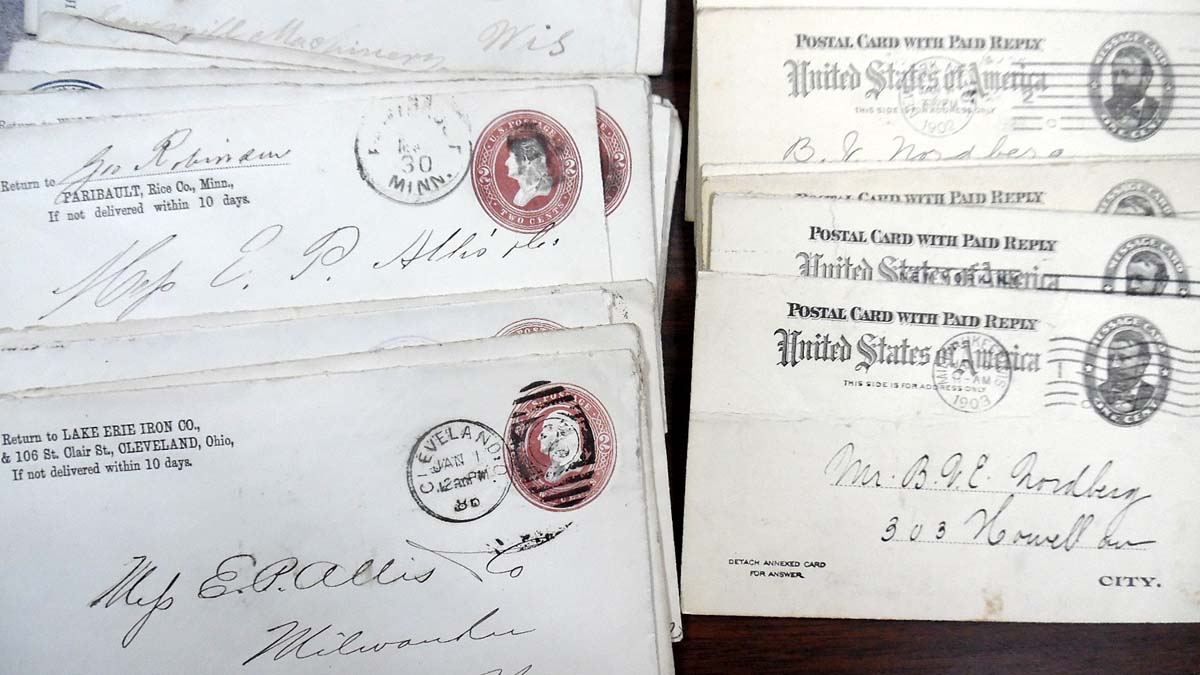 Sawmill Machinery Wis
Geo Robinson
Return to
FARIBAULT, Rice Co., Minn.,
If not delivered within 10 days.
30
MINN.
U.S. POSTAGE
2 2
TWO CENTS
Mess E. P. Allis & Co.
Return to LAKE ERIE IRON CO.,
& 106 St. Clair St., CLEVELAND, Ohio,
If not delivered within 10 days.
CLEVELAND, O.
JAN 1
12 30 PM
86
U.S. POSTAGE
2
Mess E. P. Allis & Co
Milwaukee
POSTAL CARD WITH PAID REPLY
United States of America
THIS SIDE IS FOR ADDRESS ONLY
1902
MESSAGE CARD
ONE CENT
B. V. Nordberg
POSTAL CARD WITH PAID REPLY
United States of America
MESSAGE CARD
POSTAL CARD WITH PAID REPLY
United States of America
THIS SIDE IS FOR ADDRESS ONLY
MILWAUKEE WIS
AM
1903
1
MESSAGE CARD
ONE CENT
Mr. B. V. E. Nordberg
303 Howell av
DETACH ANNEXED CARD
FOR ANSWER.
CITY.